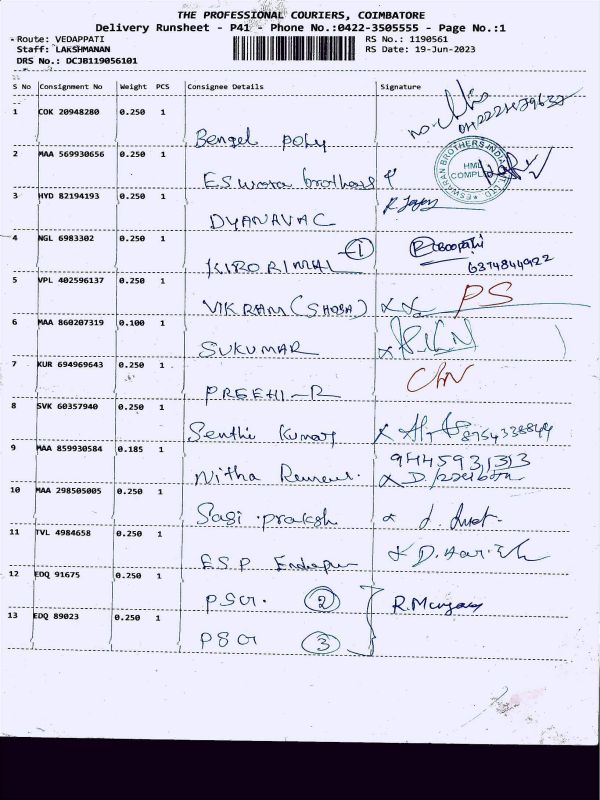 THE PROFESSIONAL COURIERS, COIMBATORE
Delivery Runsheet - P41 - Phone No.:0422-3505555 - Page No.:1
Route: VEDAPPATI RS No.: 1190561
Staff: LAKSHMANAN RS Date: 19-Jun-2023
DRS No.: DCJB119056101
S No Consignment No Weight PCS Consignee Details Signature
1 COK 20948280 0.250 1
Bengel poly
2 MAA 569930656 0.250 1
ESwara brothers
ESWARAN BROTHERS INDIA
HML COMPLEX
3 HYD 82194193 0.250 1
DYANAVAC
4 NGL 6983302 0.250 1
KIRORIMAL 1 Boopathi
6374844922
5 VPL 402596137 0.250 1
VIKRAM (SHOBA) PS
6 MAA 860207319 0.100 1
SUKUMAR
7 KUR 694969643 0.250 1
PREETHI-R
8 SVK 60357940 0.250 1
Senthil Kumar 8754338849
9 MAA 859930584 0.185 1
9445931313
Nitha
10 MAA 298505005 0.250 1
Sasi praksh
11 TVL 4984658 0.250 1
ESP
12 EDQ 91675 0.250 1
PSG. 2 R.Murugan
13 EDQ 89023 0.250 1
PSG 3